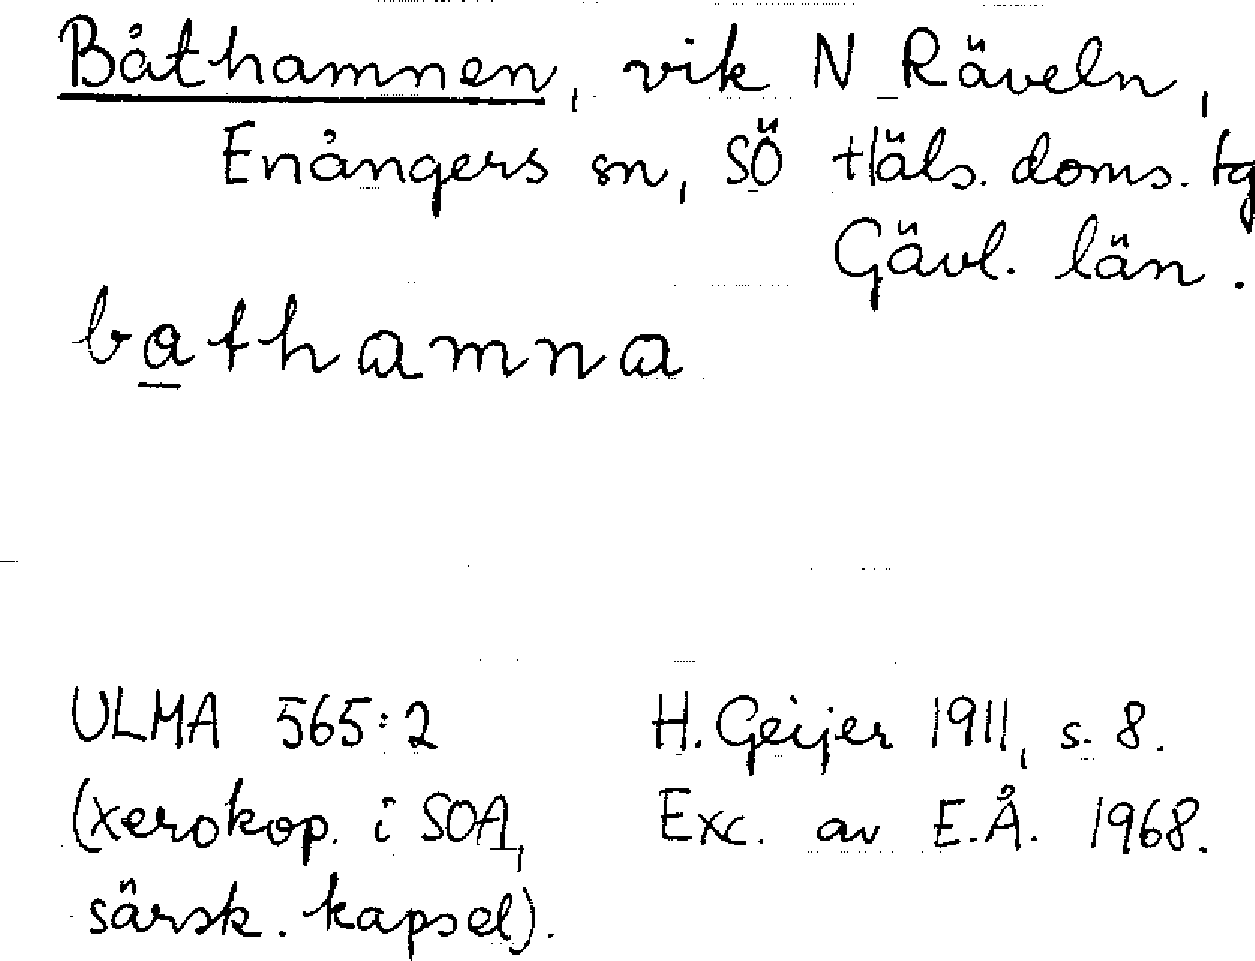 Båthamnen, vik N Räveln,
Enångers sn, SÖ Häls. doms. tg
Gävl. län.
bathamna
ULMA 565:2
(xerokop. i SOA,
särsk. kapsel).
H. Geijer 1911, s. 8.
Exc. av E.Å. 1968.